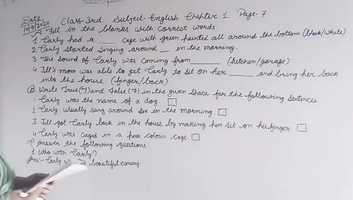 Date
Class-3rd Subject-English Chapter 1 Page-7
Fill in the blanks with correct words
1. Carly had a ______ cage with green painted all around the bottom (black/white)
2. Carly started singing around __ in the morning.
3. The sound of Carly was coming from ______ (kitchen/garage)
4. Jill's mom was able to get Carly to sit on her ______ and bring her back
into the house (finger/back)
B. Write True(✓) and False(✗) in the given space for the following sentences
1. Carly was the name of a dog. □
2. Carly usually sang around six in the morning. □
3. Jill got Carly back in the house by making her sit on her finger. □
4. Carly was caged in a four colour cage □
Answer the following questions
1. Who was Carly?
Ans:- Carly beautiful canary